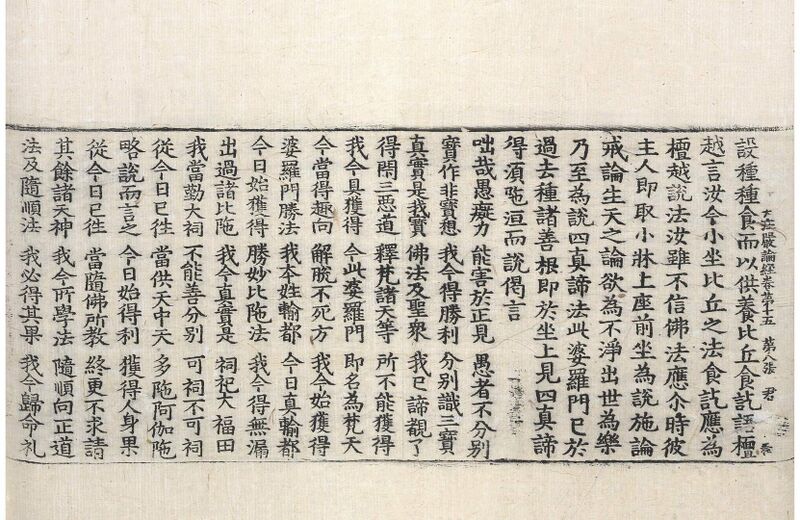 大莊嚴論經卷第十五 第八張 君
設種種食而以供養比丘食訖語檀
越言汝今小坐比丘之法食訖應為
檀越說法汝雖不信佛法應尒時彼
主人即取小牀上座前坐為說施論
戒論生天之論欲為不淨出世為樂
乃至為說四真諦法此婆羅門已於
過去種諸善根即於坐上見四真諦
得須陁洹而說偈言
咄哉愚癡力 能害於正見 愚者不分別
寶作非寶想 我今得勝利 分別識三寶
真實是我寶 佛法及聖衆 我已諦觀了
得閇三惡道 釋梵諸天等 所不能獲得
我今具獲得 今此婆羅門 即名為梵天
今當得趣向 解脫不死方 我今始獲得
婆羅門勝法 我本姓輸都 今日真輸都
今日始獲得 勝妙比陁法 我今得無漏
出過諸比陁 我今真實是 祠祀大福田
我當勤大祠 不能善分別 可祠不可祠
從今日已往 當供天中天 多陁阿伽陁
略說而言之 今日始得利 獲得人身果
從今日已往 當隨佛所教 終更不求請
其餘諸天神 我今所學法 隨順向正道
法及隨順法 我必得其果 我今歸命礼